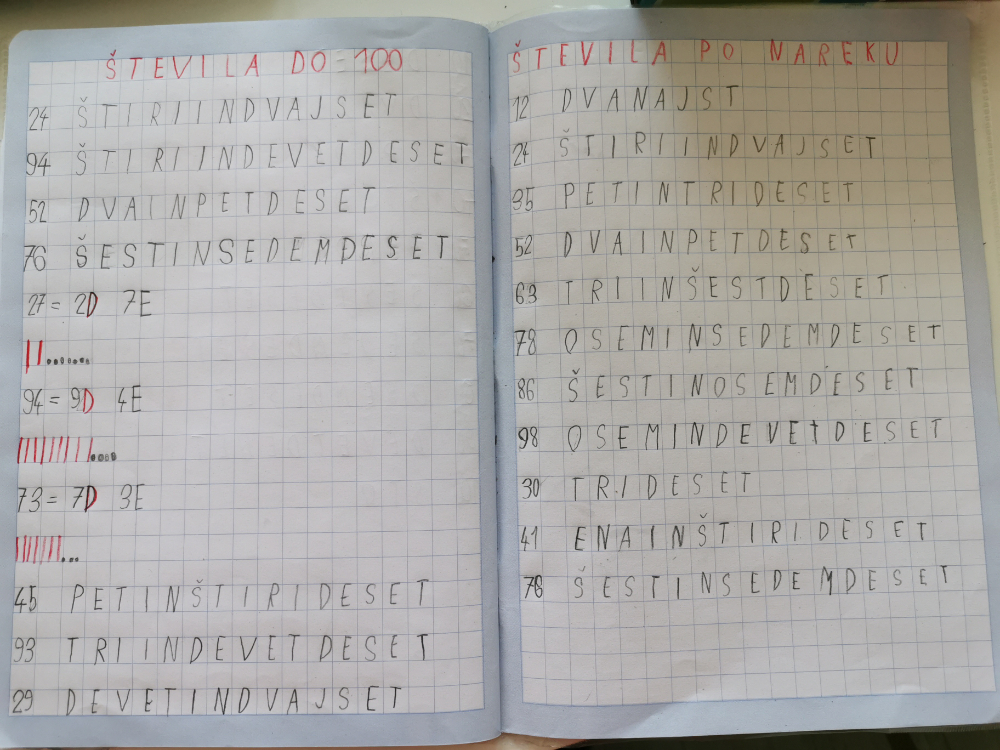 ŠTEVILA DO 100
24 ŠTIRIINDVAJSET
94 ŠTIRIINDEVETDESET
52 DVAINPETDESET
76 ŠESTINSEDEMDESET
27 = 2D 7E
94 = 9D 4E
73 = 7D 3E
45 PETINŠTIRIDESET
93 TRIINDEVETDESET
29 DEVETINDVAJSET
ŠTEVILA PO NAREKU
12 DVANAJST
24 ŠTIRIINDVAJSET
35 PETINTRIDESET
52 DVAINPETDESET
63 TRIINŠESTDESET
78 OSEMINSEDEMDESET
86 ŠESTINOSEMDESET
98 OSEMINDEVETDESET
30 TRIDESET
41 ENAINŠTIRIDESET
76 ŠESTINSEDEMDESET